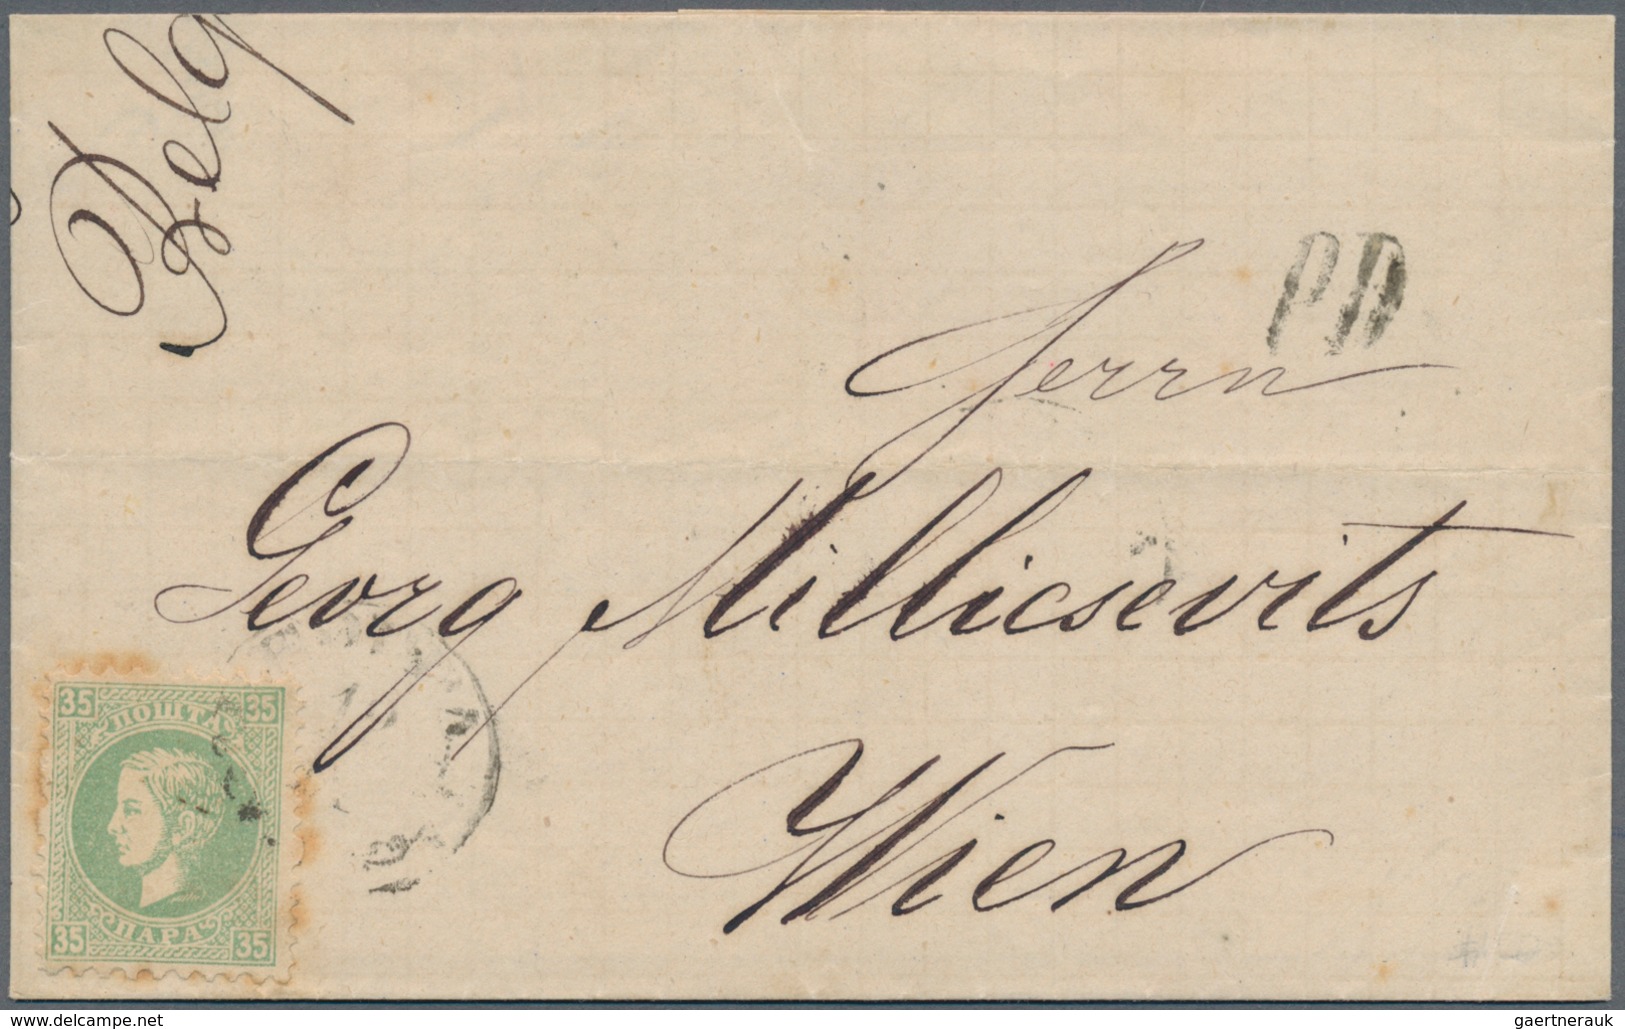 Belg
PD
Herrn
Georg Millicsevits
Wien
35 35
ПОШТА
ПАРА
35 35
delcampe.net
gaertnerauk